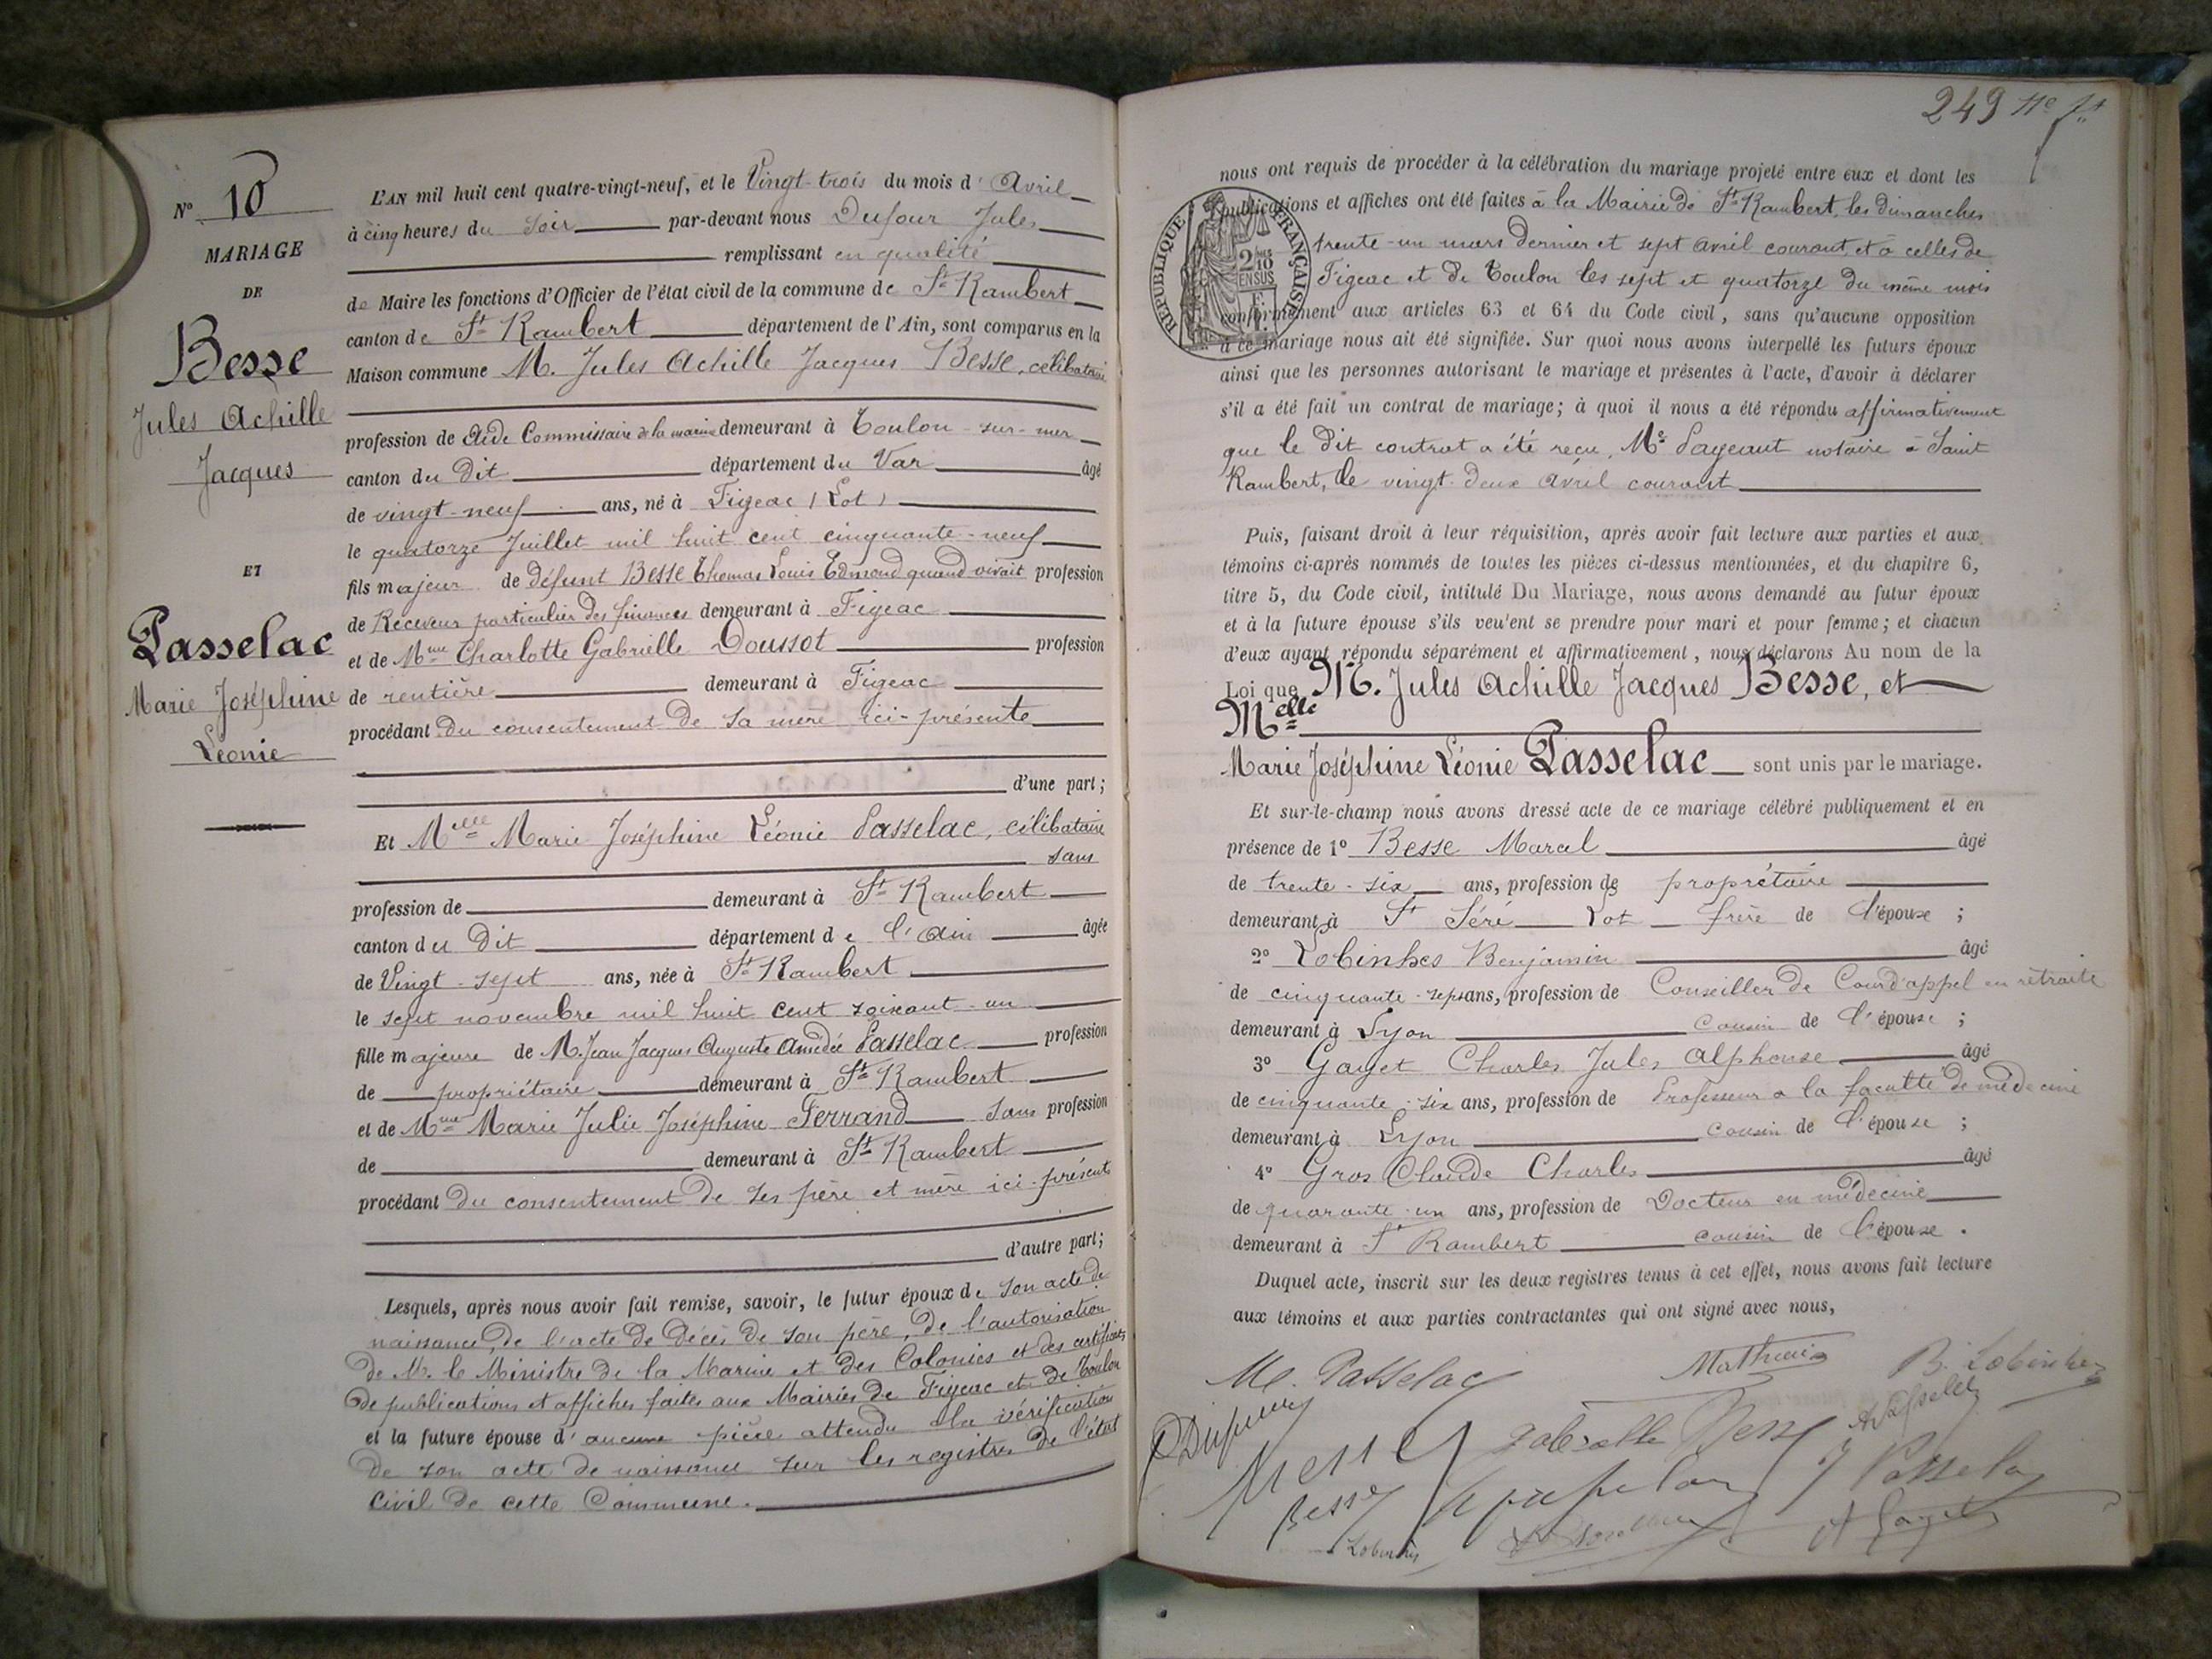 N° 10
MARIAGE
DE
Besse
Jules Achille
Jacques
ET
Passelac
Marie Joséphine
Léonie
L'AN mil huit cent quatre-vingt-neuf, et le Vingt-trois du mois d' Avril
à cinq heures du Soir par-devant nous Dufour Jules
remplissant en qualité
de Maire les fonctions d'Officier de l'état civil de la commune de St Rambert
canton de St Rambert département de l'Ain, sont comparus en la
Maison commune M. Jules Achille Jacques Besse, célibataire
profession de Aide Commissaire de la marine demeurant à Toulon-sur-mer
canton du Dit département du Var âgé
de vingt-neuf ans, né à Figeac (Lot)
le quatorze Juillet mil huit cent cinquante-neuf
fils majeur de défunt Besse Thomas Louis Edmond quand vivait profession
de Receveur particulier des finances demeurant à Figeac
et de Mme Charlotte Gabrielle Doussot profession
de rentière demeurant à Figeac
procédant du consentement de sa mère ici-présente
d'une part;
Et Melle Marie Joséphine Léonie Passelac, célibataire
sans
profession de demeurant à St Rambert
canton du Dit département de l'Ain âgée
de Vingt-sept ans, née à St Rambert
le sept novembre mil huit cent soixant-un
fille majeure de M. Jean Jacques Auguste Amédée Passelac profession
de propriétaire demeurant à St Rambert
et de Mme Marie Julie Joséphine Ferrand sans profession
de demeurant à St Rambert
procédant du consentement de ses père et mère ici-présents
d'autre part;
Lesquels, après nous avoir fait remise, savoir, le futur époux de son acte de
naissance, de l'acte de décès de son père, de l'autorisation
de M. le Ministre de la Marine et des Colonies et des certificats
de publications et affiches faites aux Mairies de Figeac et de Toulon
et la future épouse d'aucune pièce attendu la vérification
de son acte de naissance sur les registres de l'état
civil de cette Commune.
249
nous ont requis de procéder à la célébration du mariage projeté entre eux et dont les
publications et affiches ont été faites à la Mairie de St Rambert, les dimanches
trente-un mars dernier et sept avril courant, et à celles de
Figeac et de Toulon les sept et quatorze du même mois
conformément aux articles 63 et 64 du Code civil, sans qu'aucune opposition
à ce mariage nous ait été signifiée. Sur quoi nous avons interpellé les futurs époux
ainsi que les personnes autorisant le mariage et présentes à l'acte, d'avoir à déclarer
s'il a été fait un contrat de mariage; à quoi il nous a été répondu affirmativement
que le dit contrat a été reçu, Me Pageaut notaire à Saint
Rambert, le vingt-deux avril courant
RÉPUBLIQUE FRANÇAISE
2/10
EN SUS
Puis, faisant droit à leur réquisition, après avoir fait lecture aux parties et aux
témoins ci-après nommés de toutes les pièces ci-dessus mentionnées, et du chapitre 6,
titre 5, du Code civil, intitulé Du Mariage, nous avons demandé au futur époux
et à la future épouse s'ils veu'ent se prendre pour mari et pour femme; et chacun
d'eux ayant répondu séparément et affirmativement, nous déclarons Au nom de la
Loi que M. Jules Achille Jacques Besse, et
Melle
Marie Joséphine Léonie Passelac sont unis par le mariage.
Et sur-le-champ nous avons dressé acte de ce mariage célébré publiquement et en
présence de 1° Besse Marcel âgé
de trente-six ans, profession de propriétaire
demeurant à St Séré Lot frère de l'époux ;
2° Lobinhes Benjamin âgé
de cinquante-sept ans, profession de Conseiller de Cour d'appel en retraite
demeurant à Lyon cousin de l'épouse ;
3° Gayet Charles Jules Alphonse âgé
de cinquante-six ans, profession de Professeur à la faculté de médecine
demeurant à Lyon cousin de l'épouse ;
4° Gros Claude Charles âgé
de quarante-un ans, profession de Docteur en médecine
demeurant à St Rambert cousin de l'épouse .
Duquel acte, inscrit sur les deux registres tenus à cet effet, nous avons fait lecture
aux témoins et aux parties contractantes qui ont signé avec nous,
M. Passelac B. Lobinhes
Gabrielle Besse
Besse J Passelac
Lobinhes A Gayet